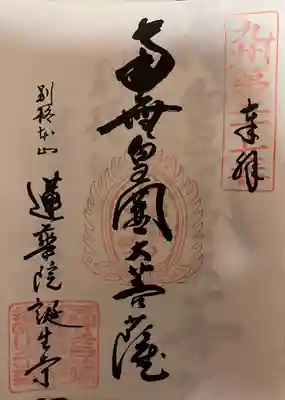 九州
奉拝
南無皇圓大菩薩
別格本山
蓮華院誕生寺